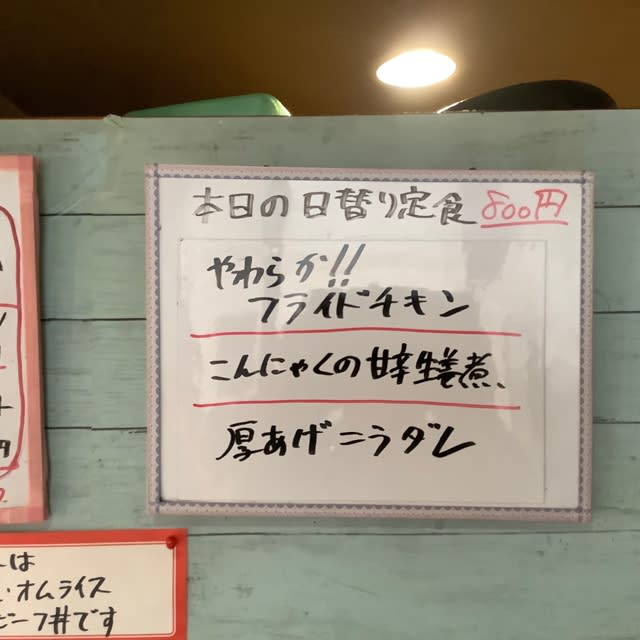 本日の日替り定食 800円
やわらか!!
フライドチキン
こんにゃくの甘辛生姜煮、
厚あげニラダレ
は
・オムライス
ビーフ丼です